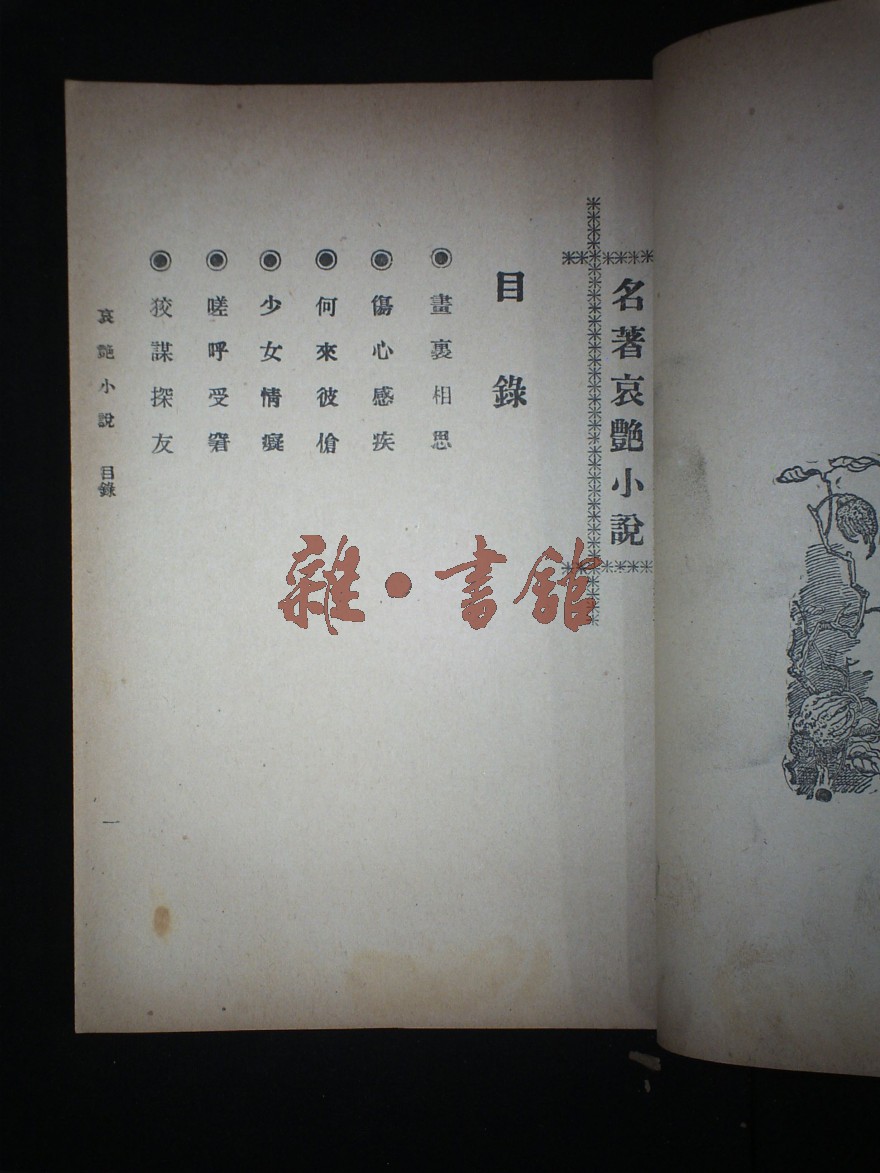 名著哀艷小說
目錄
◉畫裏相思
◉傷心感疾
◉何來彼傖
◉少女情癡
◉嗟呼受窘
◉狡謀探友
哀艷小說 目錄
一
雜·書館